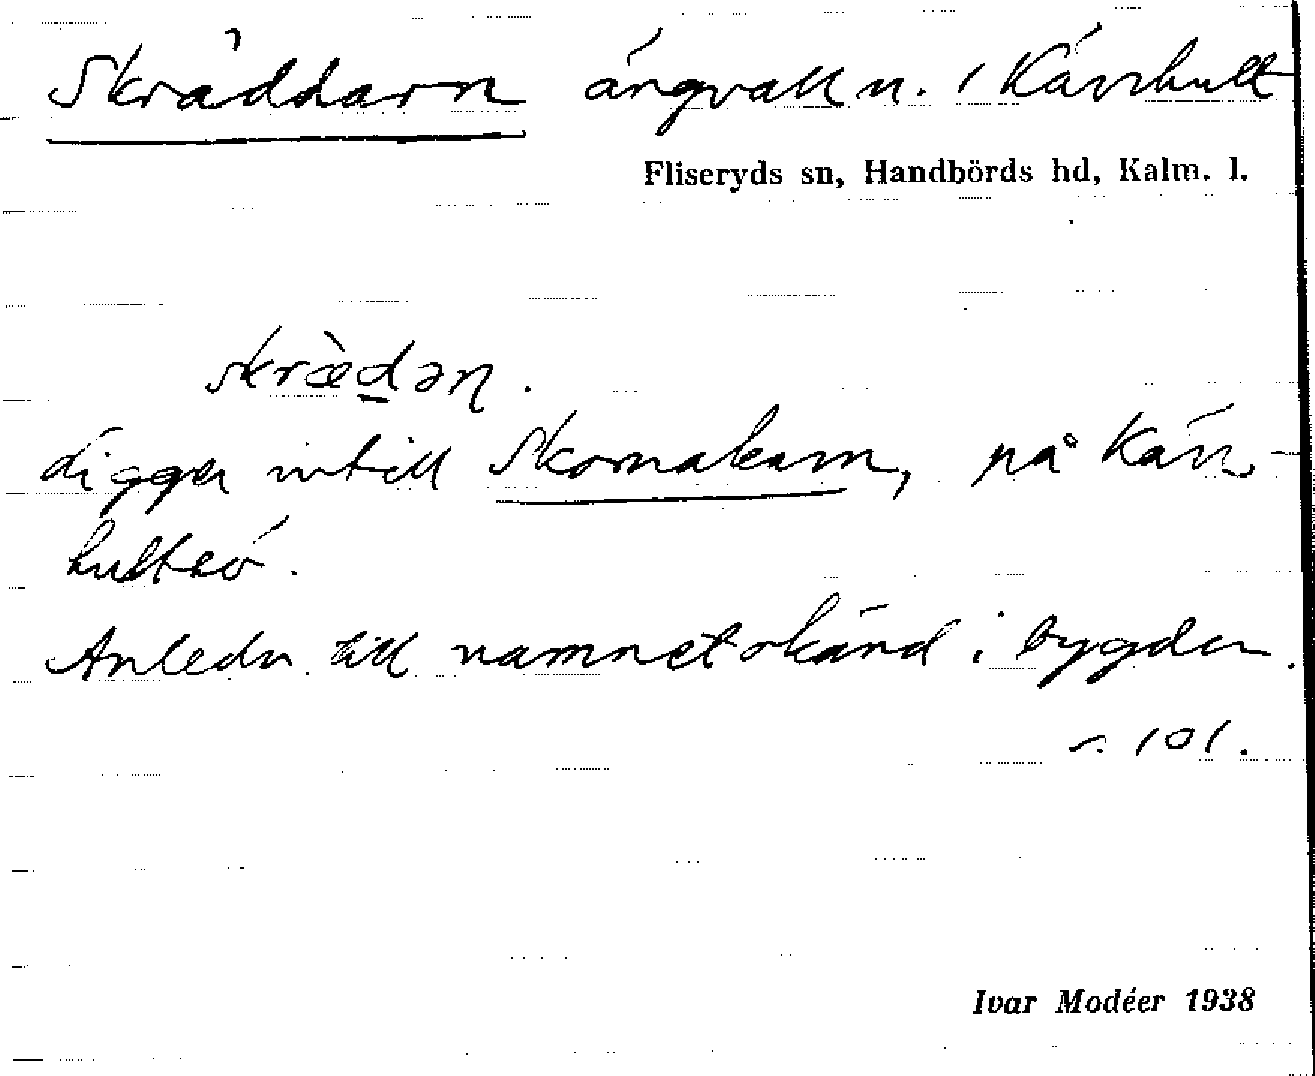 Skräddarn ängvall n. i Kärrhult
Fliseryds sn, Handbörds hd, Kalm. l.
skræ̀dən.
Ligger intill Skomakarn, på Kärr-
hultsö.
Anledn till namnet okänd i bygden.
s. 101.
Ivar Modéer 1938